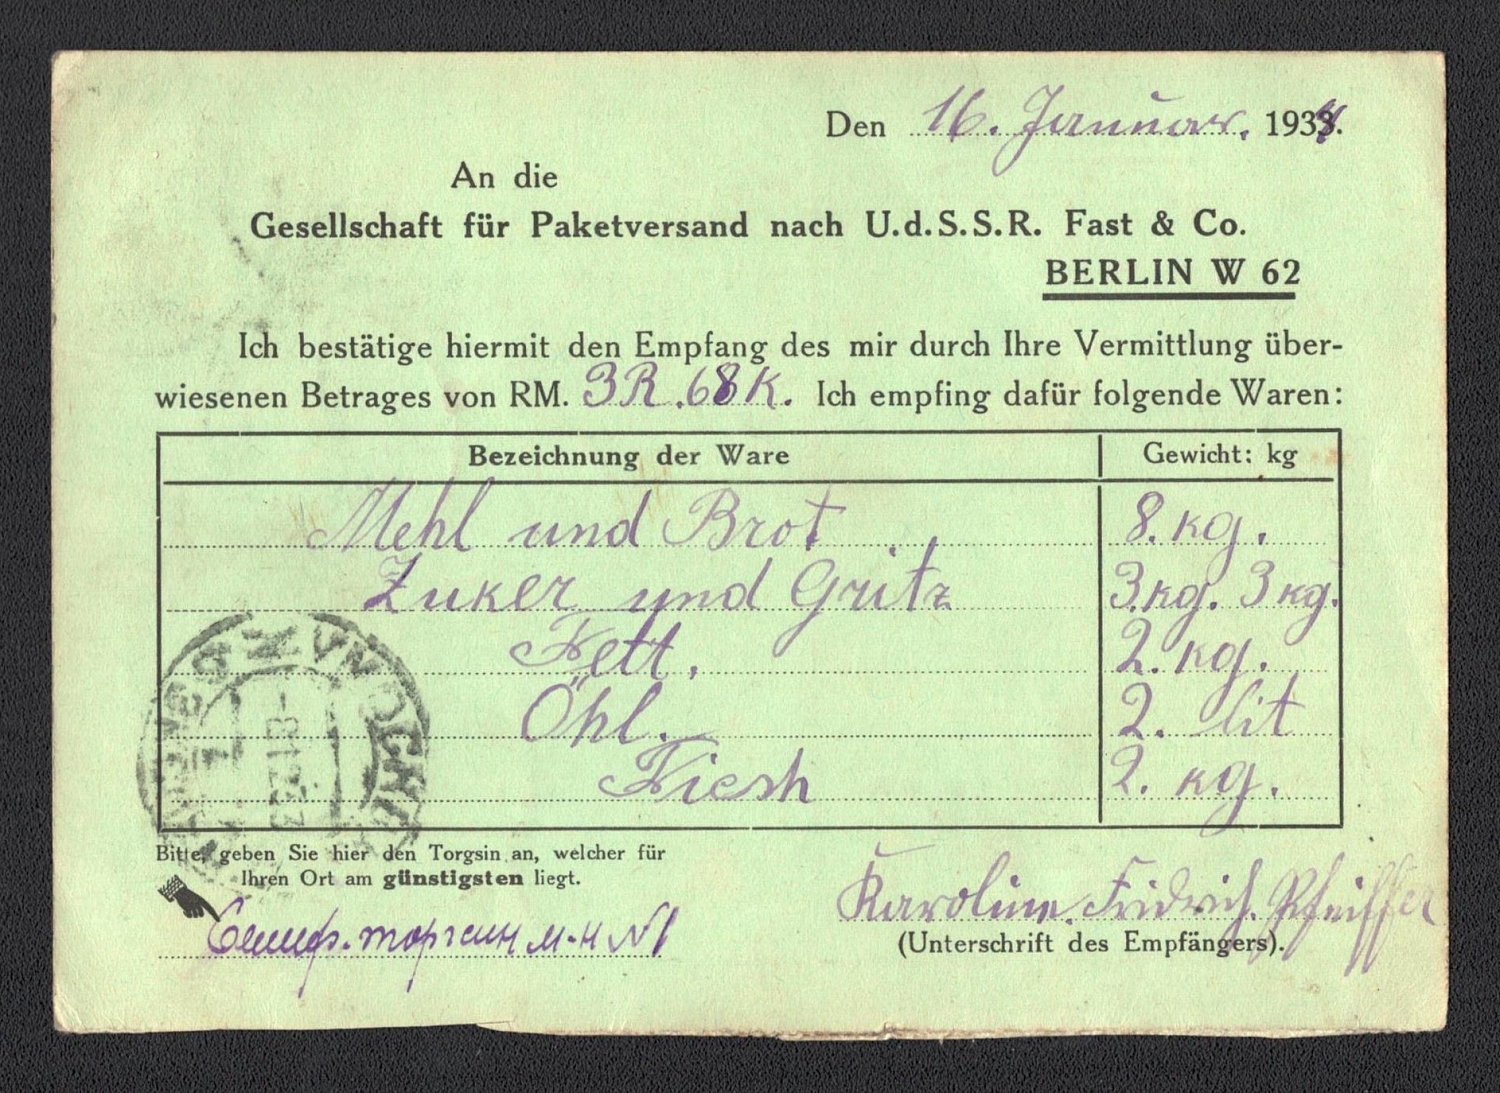 Den 16. Januar. 1934.
An die
Gesellschaft für Paketversand nach U.d.S.S.R. Fast & Co.
BERLIN W 62
Ich bestätige hiermit den Empfang des mir durch Ihre Vermittlung über-
wiesenen Betrages von RM. 3R.68K. Ich empfing dafür folgende Waren:
Bezeichnung der Ware Gewicht: kg
Mehl und Brot 8. kg.
Zuker und Gritz 3.kg. 3 kg.
Fett. 2. kg.
Öhl. 2. lit
Fiesh 2. kg.
Bitte, geben Sie hier den Torgsin an, welcher für
Ihren Ort am günstigsten liegt.
торгсин м-н №1
Karoline. Fridrich. Pfeiffer
(Unterschrift des Empfängers).